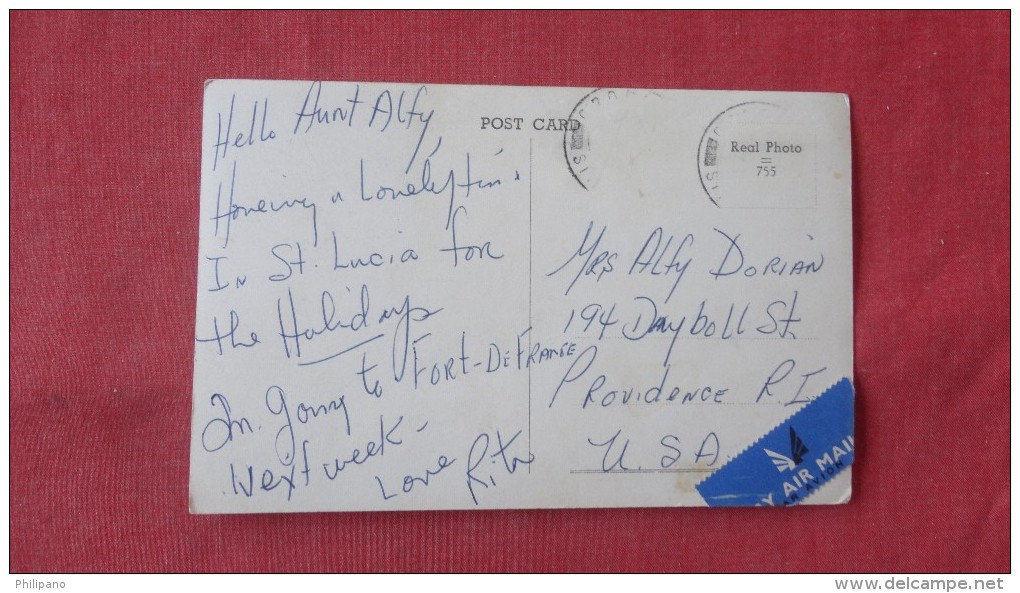 Hello Aunt Alfy,
Haveing a Lovely time
In St. Lucia for
the Holidays
I'm going to FORT-DE FRANCE
Next week-
Love Rita
POST CARD
Real Photo
=
755
Mrs Alfy DORIAN
194 Dayboll St.
PROVIDENCE R.I.
U.S.A.
Y AIR MAIL
AR AVION
Philipano
www.delcampe.net